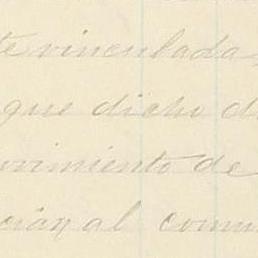 te vinculada
que dicho d
ovimiento de
ción al comu